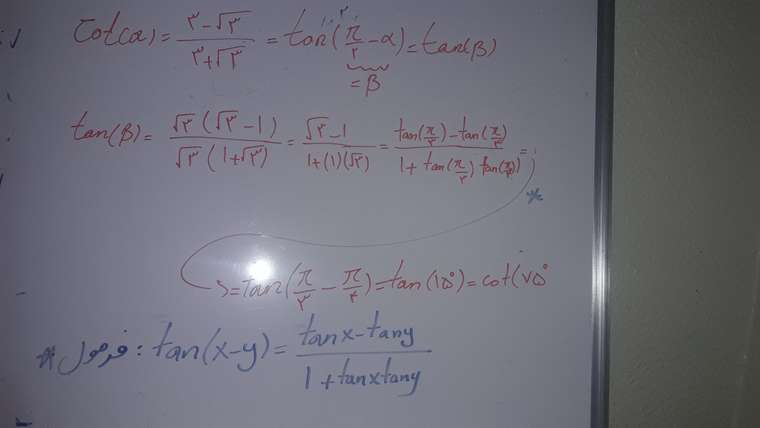 cot(α) = (۳-√۳)/(۳+√۳) = tan(π/۲ - α) = tan(β)
= β
tan(β) = √۳(√۳-1)/√۳(1+√۳) = (√۳-1)/(1+(1)(√۳)) = (tan(π/۳)-tan(π/۴))/(1+tan(π/۳)tan(π/۴)) =
*
= tan(π/۳ - π/۴) = tan(۱۵°) = cot(۷۵°
* فرمول : tan(x-y) = (tanx-tany)/(1+tanxtany)